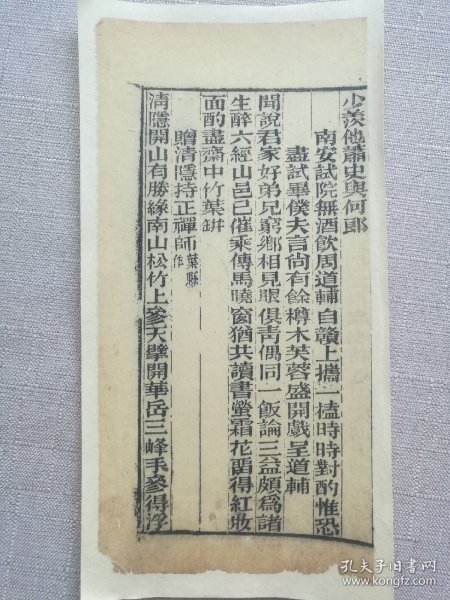 少羨他蕭史與何郎
南安試院無酒飲周道輔自贛上攜一榼時時對酌惟恐
盡試畢僕夫言尚有餘樽木芙蓉盛開戲呈道輔
聞說君家好弟兄窮鄉相見眼俱青偶同一飯論三益頗爲諸
生醉六經山邑已催乘傳馬曉窗猶共讀書螢霜花留得紅妝
面酌盡齋中竹葉缾
贈清隱持正禪師葉縣作
清隱開山有勝緣南山松竹上參天擘開華岳三峰手參得浮
孔夫子旧书网
www.kongfz.com